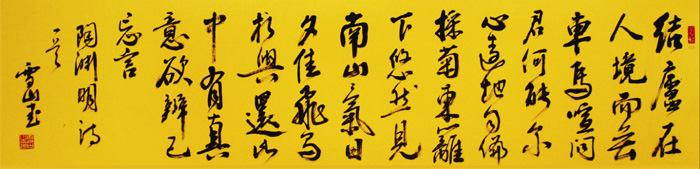 结廬在
人境而无
車馬喧问
君何能尔
心遠地自偏
採菊東籬
下悠然見
南山々氣日
夕佳飛鸟
相與還此
中有真
意欲辨已
忘言
陶渊明诗
雪山